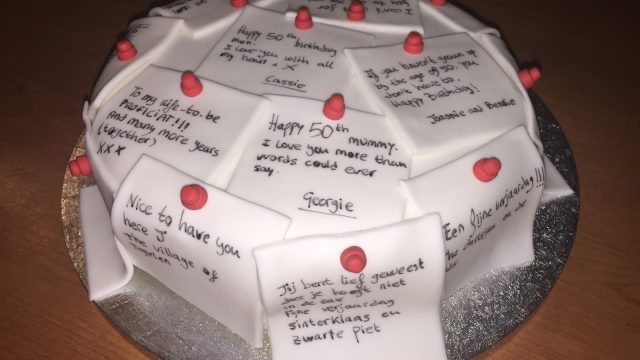 Happy 50th birthday
mum.
I love you with all
my heart x X
Cassie
If you haven't grown up
by the age of 50, you
don't have to.
Happy Birthday!
Joannie and
To my wife-to-be
PROFICIAT!!!
And many more years
(together)
XXX
Happy 50th mummy.
I love you more than
words could ever
say.
Georgie
Een fijne verjaardag!!!!
Nice to have you
here
The village of
Jij bent lief geweest
dus je hoeft niet
in de zak
Fijne verjaardag
sinterklaas en
zwarte piet